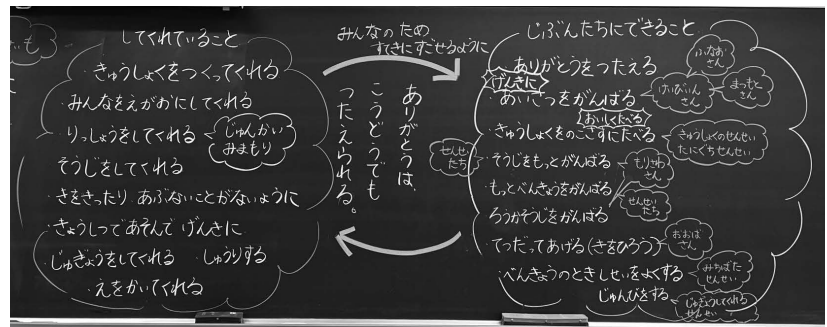 いも
してくれていること
・きゅうしょくをつくってくれる
・みんなをえがおにしてくれる
・りっしょうをしてくれる
じゅんかい
みまもり
そうじをしてくれる
・きをきったり あぶないことがないように
・きょうしつであそんで げんきに
・じゅぎょうをしてくれる ・しゅうりする
・えをかいてくれる
みんなの ため
すてきに すごせるように
ありがとうは、
こうどうでも
つたえられる。
じぶんたちにできること
ありがとうをつたえる
ふなお
さん
げんきに
・あいさつをがんばる
けいびいん
さん
まつもと
さん
おいしくたべる
・きゅうしょくをのこさずにたべる
きゅうしょくのせんせい
たにぐちせんせい
せんせい
たち
・そうじをもっとがんばる
もりさわ
さん
・もっとべんきょうをがんばる
せんせい
たち
ろうかそうじをがんばる
・てつだってあげる(きをひろう)
おおば
さん
・べんきょうのときしせいをよくする
みちばた
せんせい
じゅんびをする
じゅぎょうしてくれる
せんせい